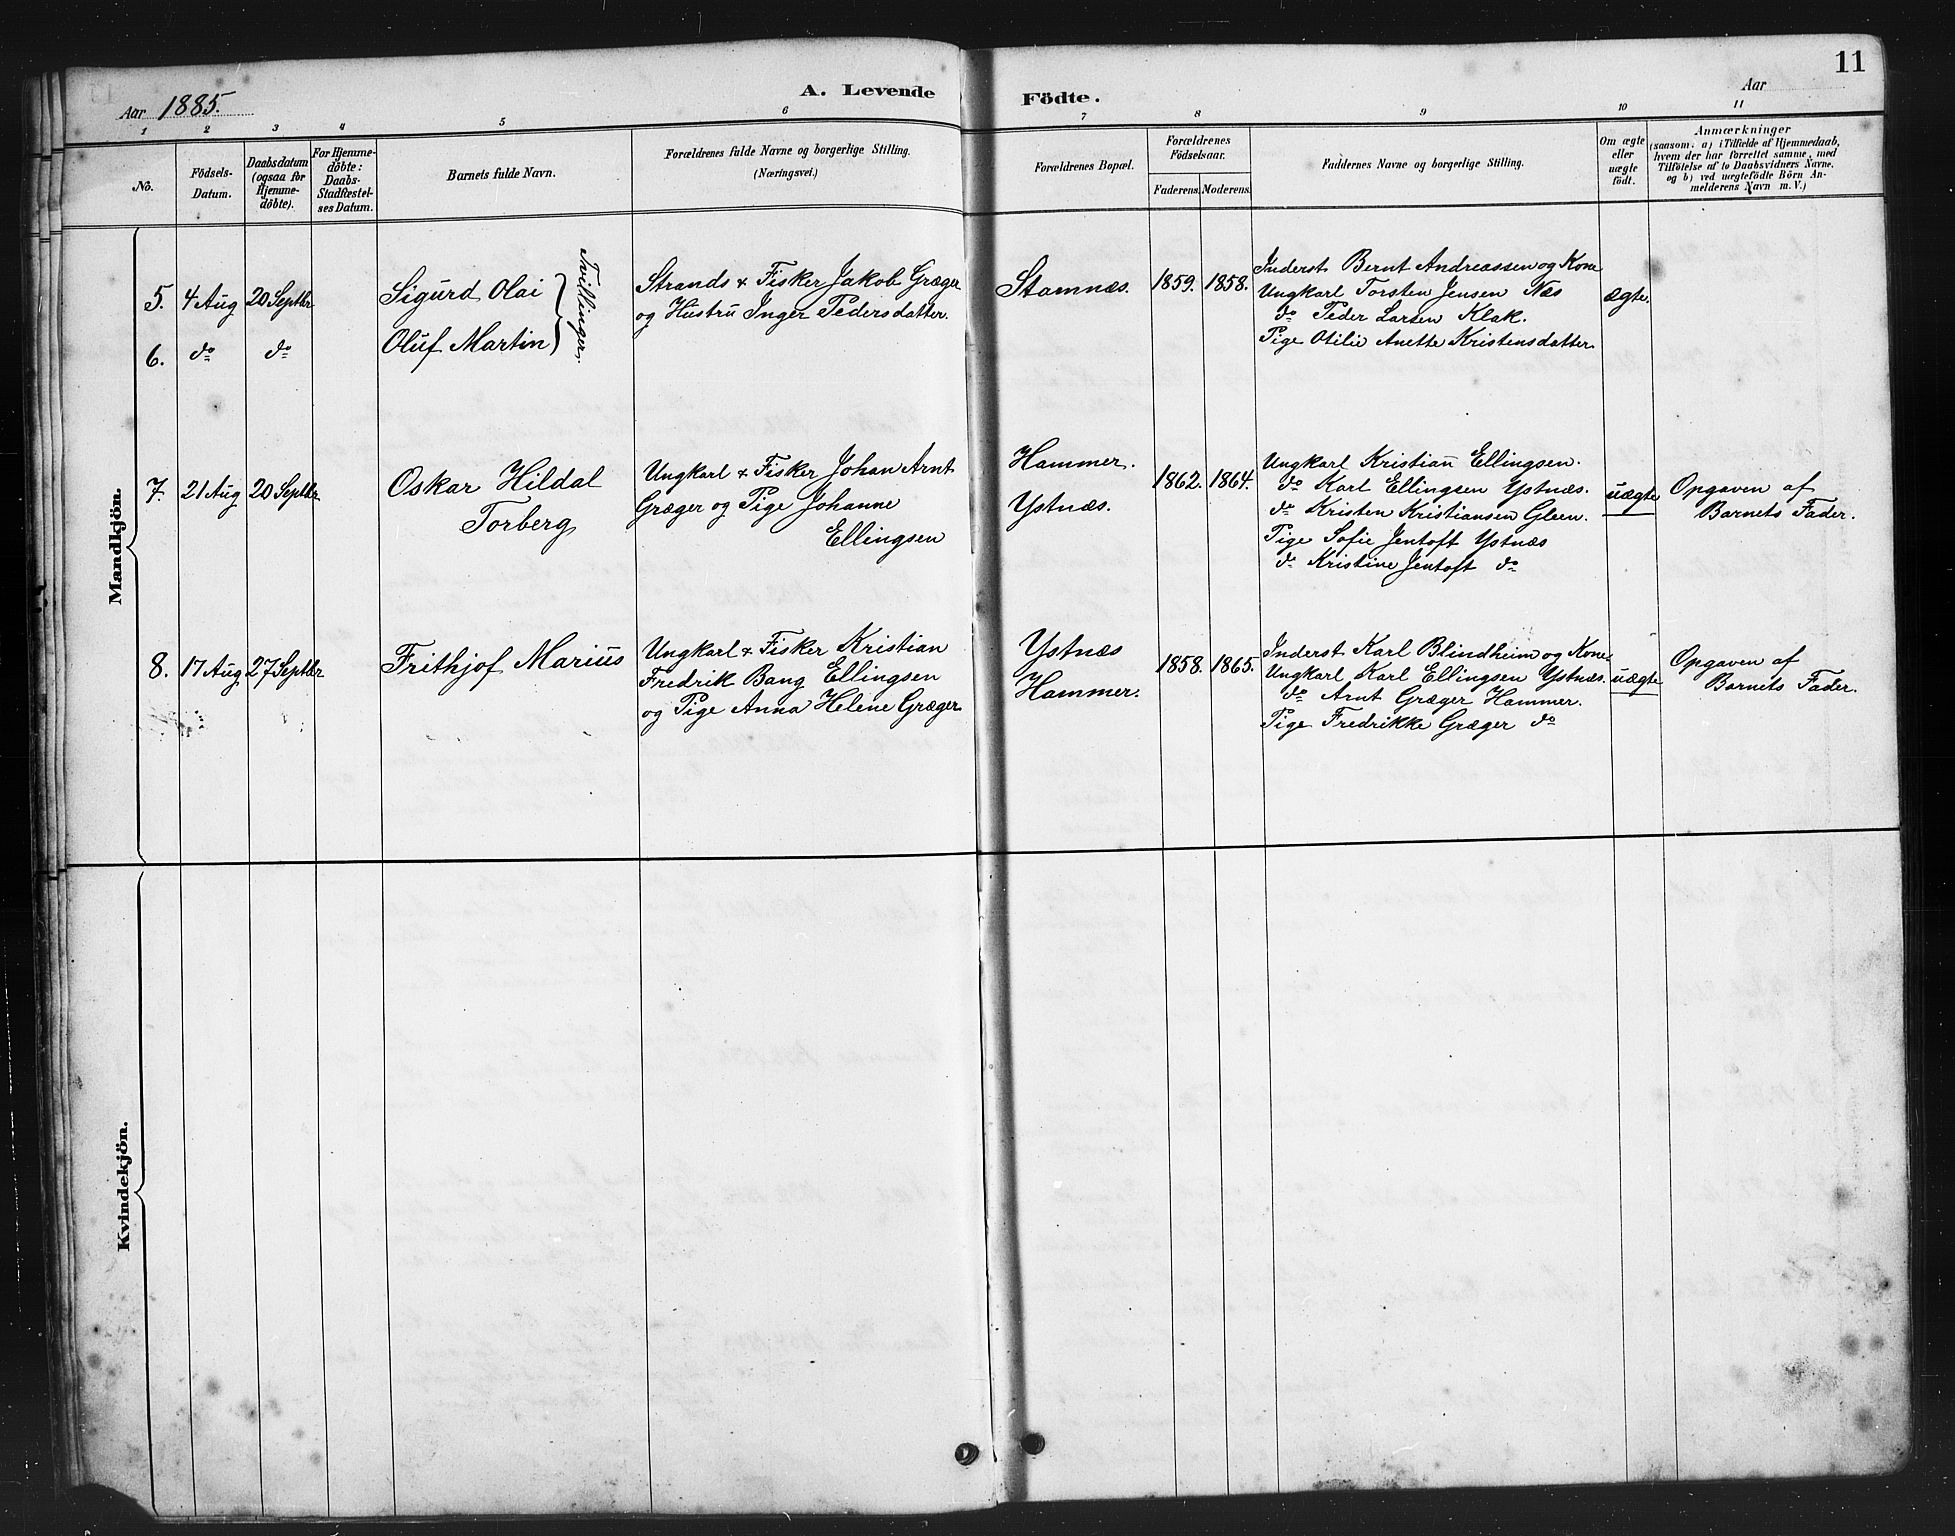 11
Aar 1885.
A. Levende Födte.
Aar
1 2 3 4 5 6 7 8 9 10 11
No.
Födsels-
Datum.
Daabsdatum
(ogsaa for
Hjemme-
döbte).
For Hjemme-
döbte:
Daabs-
Stadfæstel-
ses Datum.
Barnets fulde Navn.
Forældrenes fulde Navne og borgerlige Stilling.
(Næringsvei.)
Forældrenes Bopæl.
Forældrenes
Födselsaar.
Faderens. Moderens.
Faddernes Navne og borgerlige Stilling.
Om ægte
eller
uægte
födt.
Anmærkninger
(saasom: a) i Tilfælde af Hjemmedaab,
hvem der har forrettet samme, med
Tilföielse af to Daabsvidners Navne.
og b) ved uægtefödte Börn An-
melderens Navn m. V.)
Mandkjön.
5. 4 Aug 20 Septbr
Sigurd Olai
6. do do
Oluf Martin
Tvillinger.
Strands & Fisker Jakob Græger
og Hustru Inger Pedersdatter.
Stamnæs. 1859. 1858.
Inderst Bernt Andreassen og Kone
Ungkarl Torsten Jensen Næs
do Peder Larsen Klak.
Pige Otilie Anette Kristensdatter.
ægte.
7. 21 Aug 20 Septbr
Oskar Hildal
Torberg
Ungkarl & Fisker Johan Arnt
Græger og Pige Johanne
Ellingsen
Hammer.
Ystnæs.
1862. 1864.
Ungkarl Kristian Ellingsen.
do Karl Ellingsen Ystnæs.
do Kristen Kristiansen Gleen.
Pige Sofie Jentoft Ystnæs
do Kristine Jentoft do
uægte
Opgaven af
Barnets Fader.
8. 17 Aug 27 Septbr
Frithjof Marius
Ungkarl & Fisker Kristian
Fredrik Bang Ellingsen
og Pige Anna Helene Græger
Ystnæs
Hammer.
1858. 1865.
Inderst Karl Blindheim og Kone
Ungkarl Karl Ellingsen Ystnæs.
do Arnt Græger Hammer.
Pige Fredrikke Græger do
uægte
Opgaven af
Barnets Fader.
Kvindekjön.